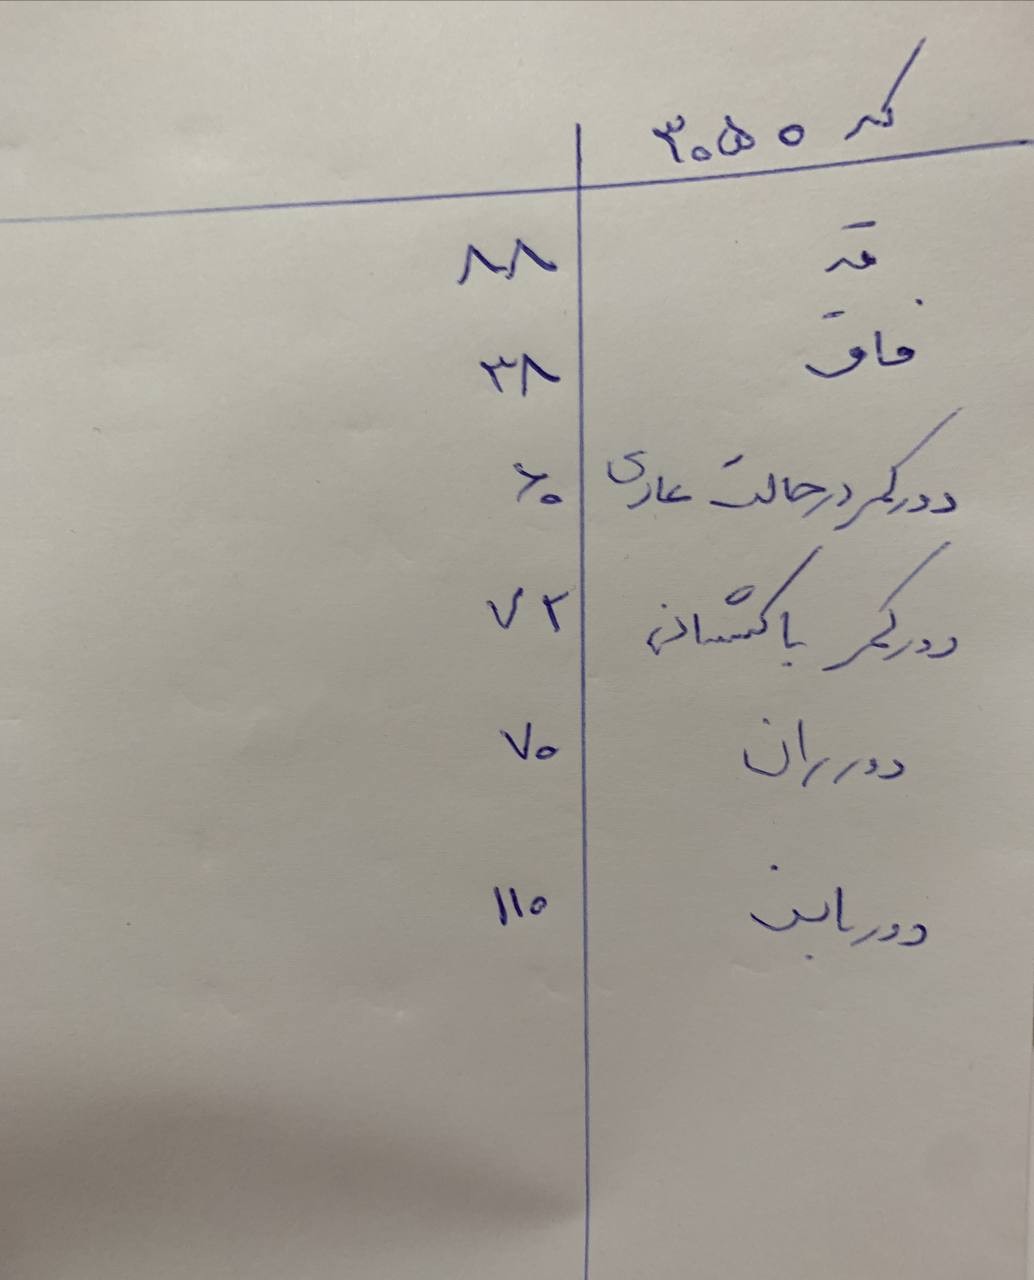 کد ۳۰۵۰
قد ۸۸
فاق ۳۸
دور کمر در حالت عادی ۶۰
دور کمر با کشسانی ۷۲
دور ران ۷۰
دور باسن ۱۱۰